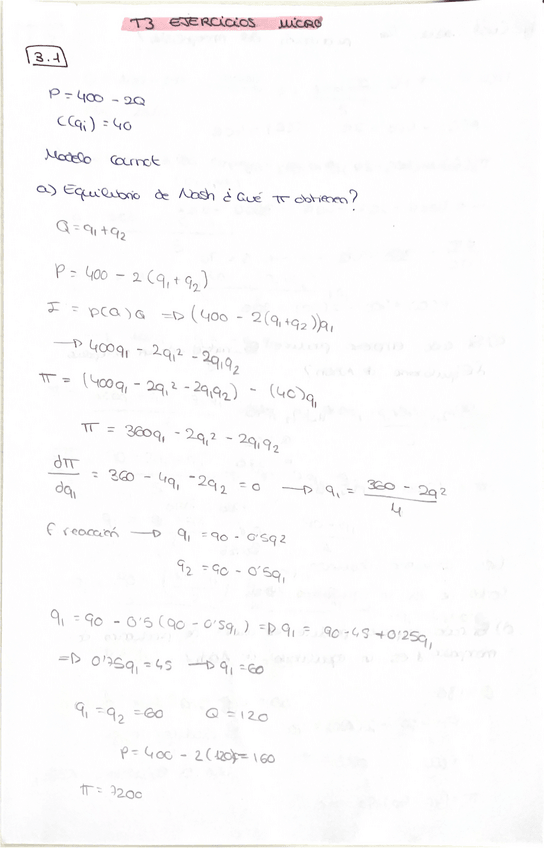 T3 EJERCICIOS MICRO
3.1
P = 400 - 2Q
C(qi) = 40
Modelo Carnot
a) Equilibrio de Nash ¿Qué π obtienen?
Q = q1 + q2
P = 400 - 2(q1 + q2)
I = p(Q)Q => (400 - 2(q1+q2))q1
→ 400q1 - 2q1² - 2q1q2
π = (400q1 - 2q1² - 2q1q2) - (40)q1
π = 360q1 - 2q1² - 2q1q2
dπ/dq1 = 360 - 4q1 - 2q2 = 0 → q1 = (360 - 2q2)/4
f reacción → q1 = 90 - 0'5q2
q2 = 90 - 0'5q1
q1 = 90 - 0'5(90 - 0'5q1) => q1 = 90 - 45 + 0'25q1
=> 0'75q1 = 45 → q1 = 60
q1 = q2 = 60 Q = 120
P = 400 - 2(120) = 160
π = 7200